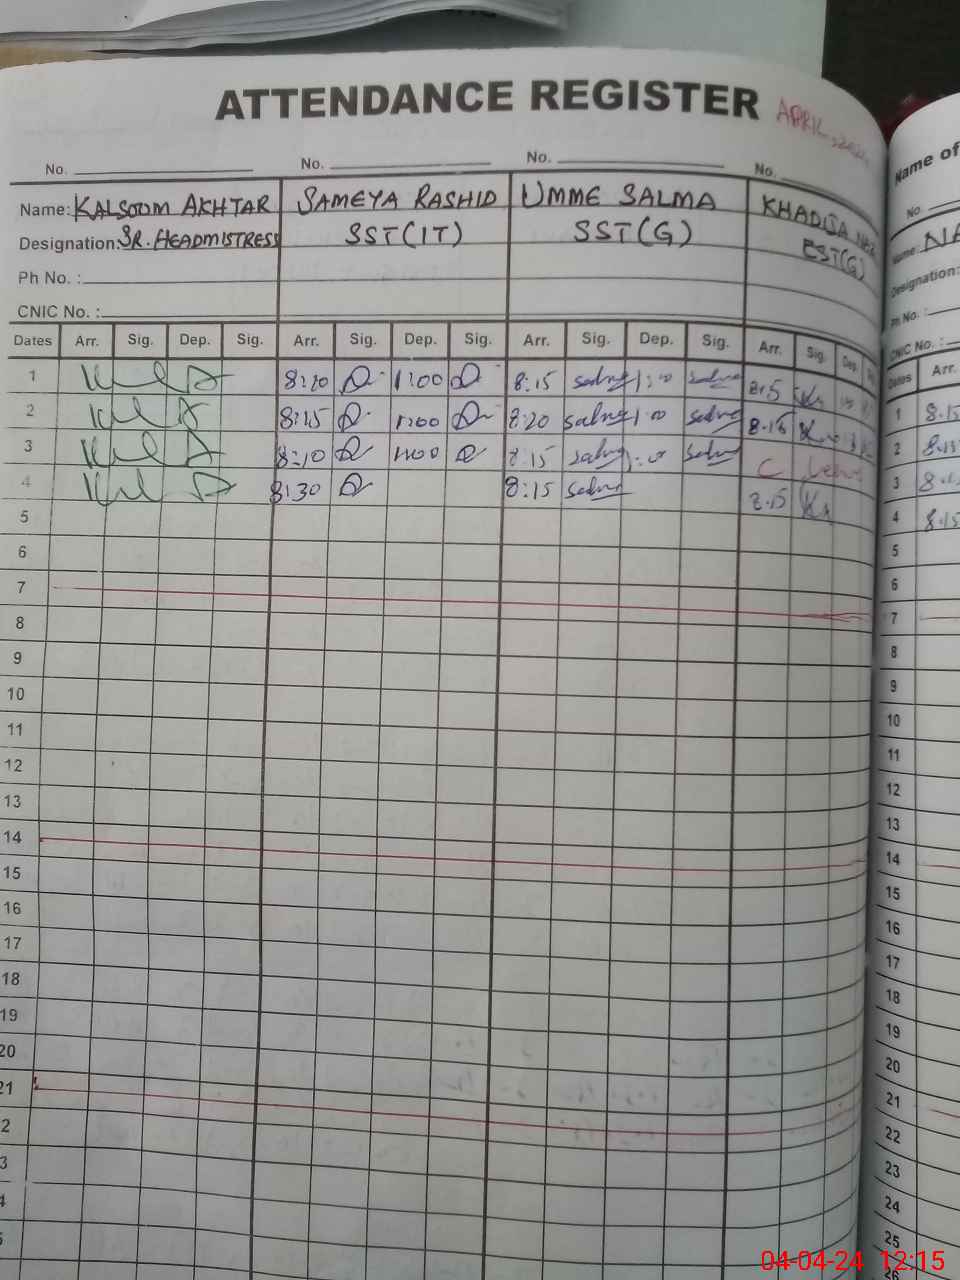 ATTENDANCE REGISTER APRIL, 2024
No. No. No. No.
Name: KALSOOM AKHTAR SAMEYA RASHID UMME SALMA KHADIJA
Designation: SR. HEADMISTRESS SST(IT) SST(G) EST(G)
Ph No. :
CNIC No. :
Dates Arr. Sig. Dep. Sig. Arr. Sig. Dep. Sig. Arr. Sig. Dep. Sig. Arr. Sig. Dep.
1 8:20 1:00 8:15 salma 1:00 salma 8.15
2 8:15 1:00 8:20 salma 1:00 salma 8.15
3 8:10 1:00 8:15 salma 1:00 salma C Leave
4 8:30 8:15 salma 8.15
5
6
7
8
9
10
11
12
13
14
15
16
17
18
19
20
21
2
3
4
5
Name of
No.
Name: NA
Designation:
Ph No. :
CNIC No. :
Dates Arr.
1 8.15
2
3
4 8.15
5
6
7
8
9
10
11
12
13
14
15
16
17
18
19
20
21
22
23
24
25
26
04-04-24 12:15